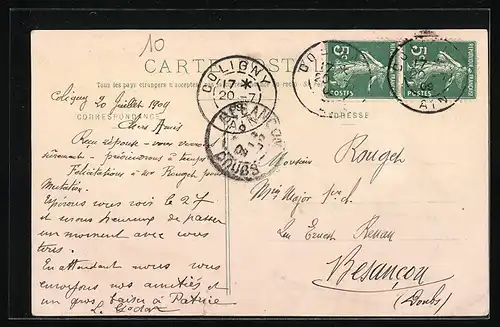 10
CARTE POSTALE
Tous les pays étrangers n'acceptent pas
CORRESPONDANCE
ADRESSE
COLIGNY
17 *
20 -7
AIN
BESANÇON
DOUBS
5c
POSTES
REPUBLIQUE FRANÇAISE
5c
POSTES
Coligny 20 juillet 1909
Chers Amis
Reçu réponse - vous
- préviendrons à temps
Félicitations à Mr Rougch pour
mutation.
Espérons vous voir le 27
et serons heureux de passer
un moment avec vous
tous.
En attendant nous vous
envoyons nos amitiés et
un gros baiser à Patrie
L. Godar
Monsieur Rougch
Major
Rue Ernest Renan
Besançon
(Doubs)